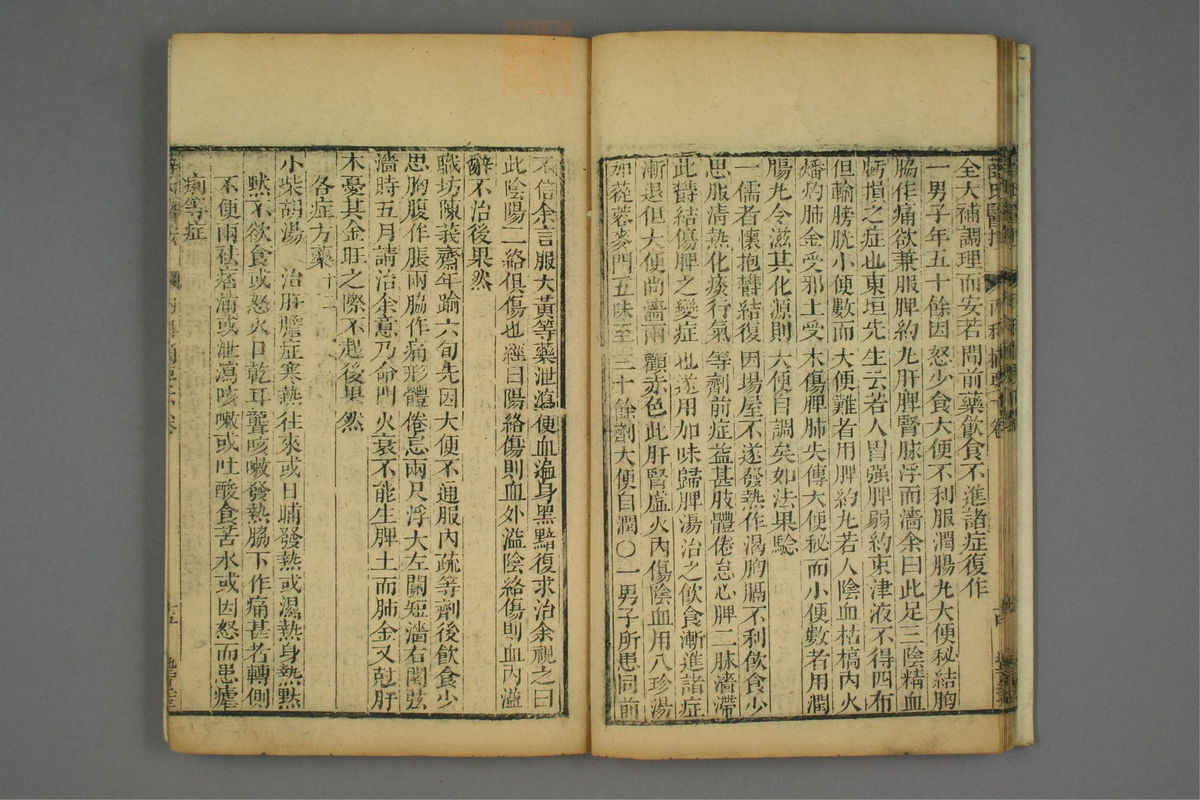 全大補調理而安若間前藥飲食不進諸症復作
一男子年五十餘因怒少食大便不利服潤腸丸大便秘結胸
脇作痛欲兼服脾約丸肝脾腎脉浮而濇余曰此足三陰精血
虧損之症也東垣先生云若人胃强脾弱約束津液不得四布
但輸膀胱小便數而大便難者用脾約丸若人陰血枯槁内火
燔灼肺金受邪土受木傷脾肺失傳大便秘而小便數者用潤
腸丸今滋其化源則大便自調矣如法果驗
一儒者懷抱鬱結復因場屋不遂發熱作渴胸膈不利飲食少
思服淸熱化痰行氣等劑前症益甚肢體倦怠心脾二脉濇滯
此鬱結傷脾之變症也遂用加味歸脾湯治之飲食漸進諸症
漸退但大便尚濇兩顴赤色此肝腎虛火內傷陰血用八珍湯
加蓯蓉麥門五味至三十餘劑大便自潤○一男子所患同前
不信余言服大黃等藥泄瀉便血遍身黑黯復求治余視之曰
此陰陽二絡俱傷也經曰陽絡傷則血外溢陰絡傷則血內溢
辭不治後果然
職坊陳莪齋年踰六旬先因大便不通服內疏等劑後飲食少
思胸腹作脹兩脇作痛形體倦怠兩尺浮大左關短濇右關弦
濇時五月請治余意乃命門火衰不能生脾土而肺金又尅肝
木憂其金旺之際不起後果然
各症方藥
小柴胡湯 治肝膽症寒熱往來或日晡發熱或濕熱身熱黙
黙不欲食或怒火口乾耳聾咳嗽發熱脇下作痛甚者轉側
不便兩袪痞滿或泄瀉咳嗽或吐酸食苦水或因怒而患瘧
痢等症